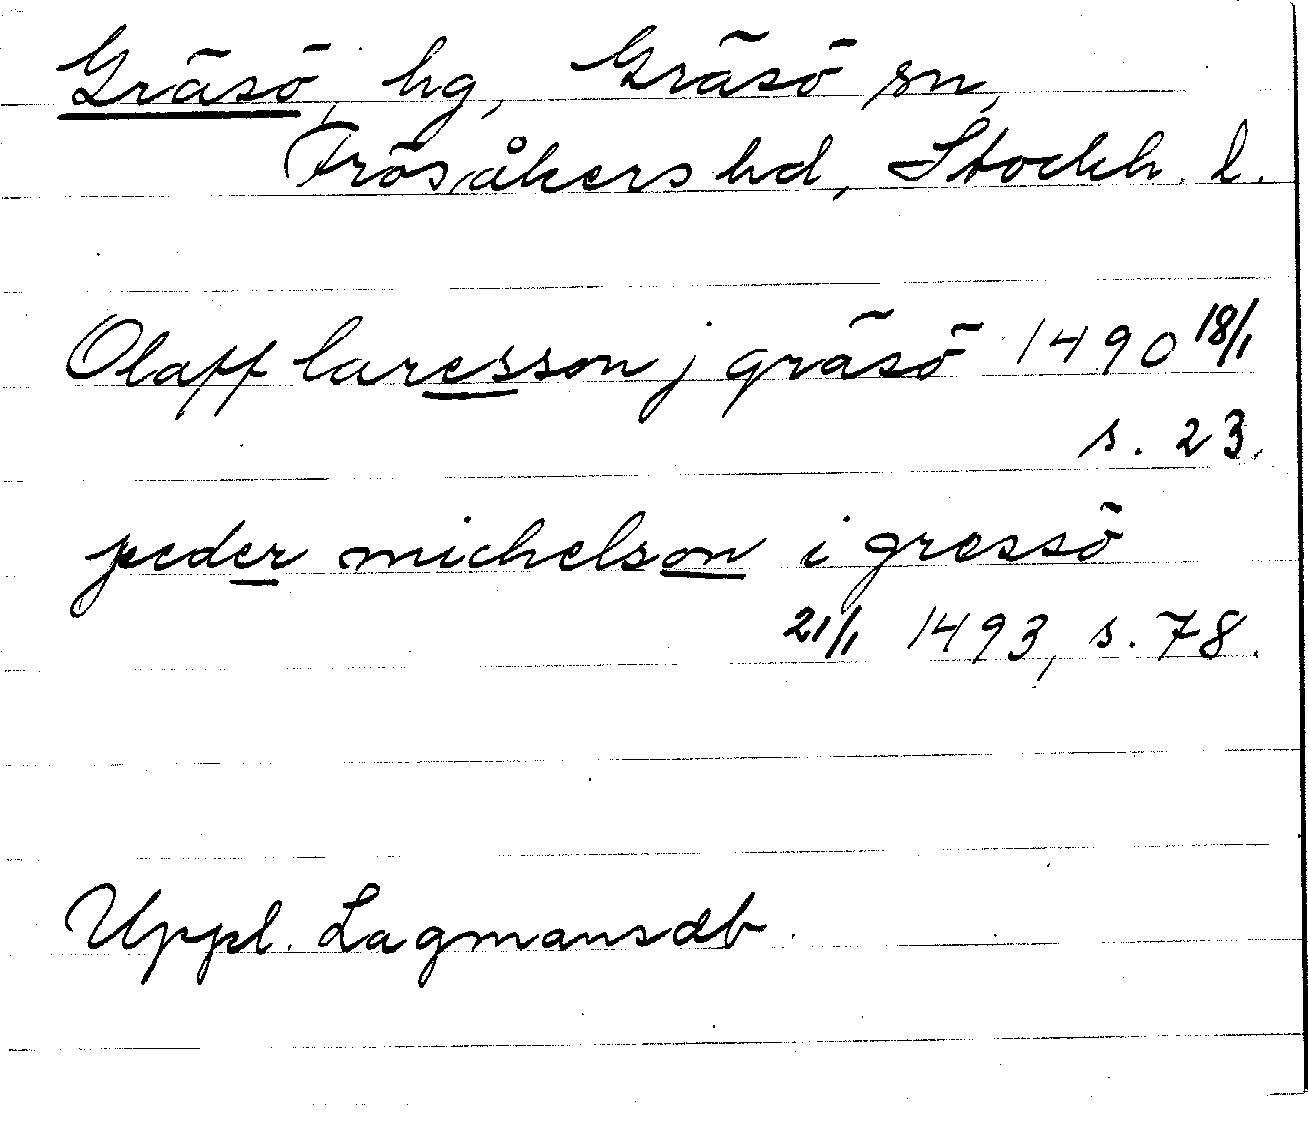 Gräsö, hg, Gräsö sn,
Frösåkers hd, Stockh. l.
Olaff laresson j gräsö 1490 18/1
s. 23.
peder michelson i gressö
21/1 1493, s. 78.
Uppl. Lagmansdb.